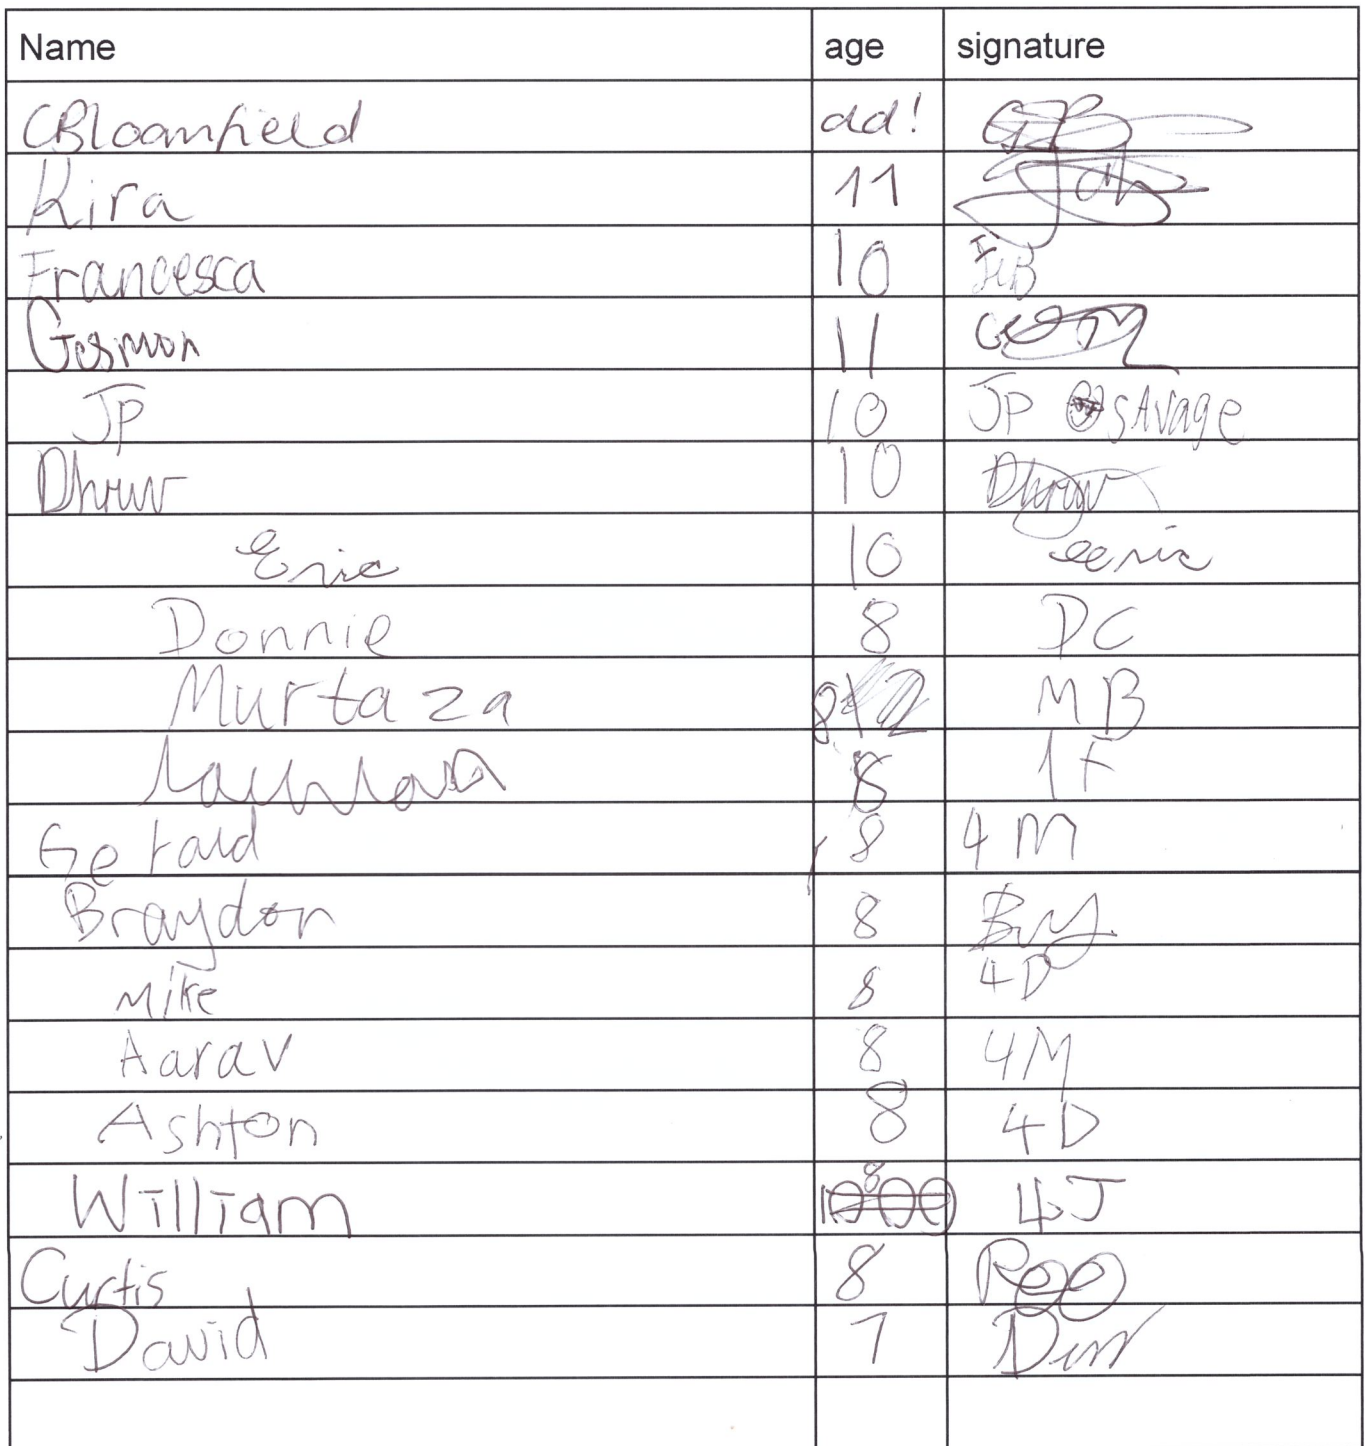 Name age signature
CBloomfield old! CJB
Kira 11
Francesca 10 FUB
Gosmon 11
JP 10 JP SAvage
Dhruv 10 Dhruv
Eric 10 eeric
Donnie 8 DC
Murtaza 8 MB
8 1F
Gerald 8 4M
Braydon 8
Mike 8 4D
Aarav 8 4M
Ashton 8 4D
William 8 4J
Curtis 8
David 7